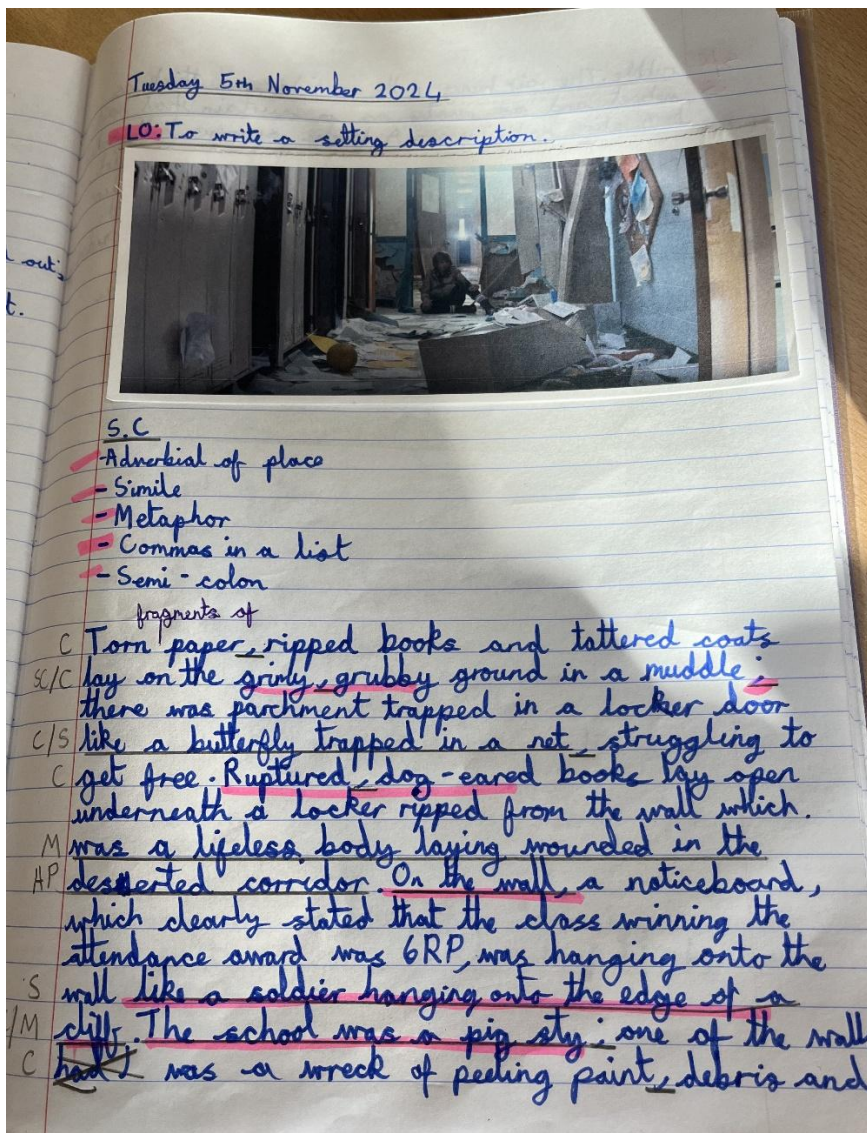 Tuesday 5th November 2024
LO: To write a setting description.
out:
t.
S.C
-Adverbial of place
- Simile
- Metaphor
- Commas in a list
- Semi-colon
fragments of
C Torn paper, ripped books and tattered coats
SC/C lay on the grimy, grubby ground in a muddle;
there was parchment trapped in a locker door
C/S like a butterfly trapped in a net, struggling to
C get free. Ruptured, dog-eared books lay open
underneath a locker ripped from the wall which.
M was a lifeless body laying wounded in the
AP deserted corridor. On the wall, a noticeboard,
which clearly stated that the class winning the
attendance award was 6RP, was hanging onto the
S wall like a soldier hanging onto the edge of a
/M cliff. The school was a pig sty; one of the wall
C had was a wreck of peeling paint, debris and